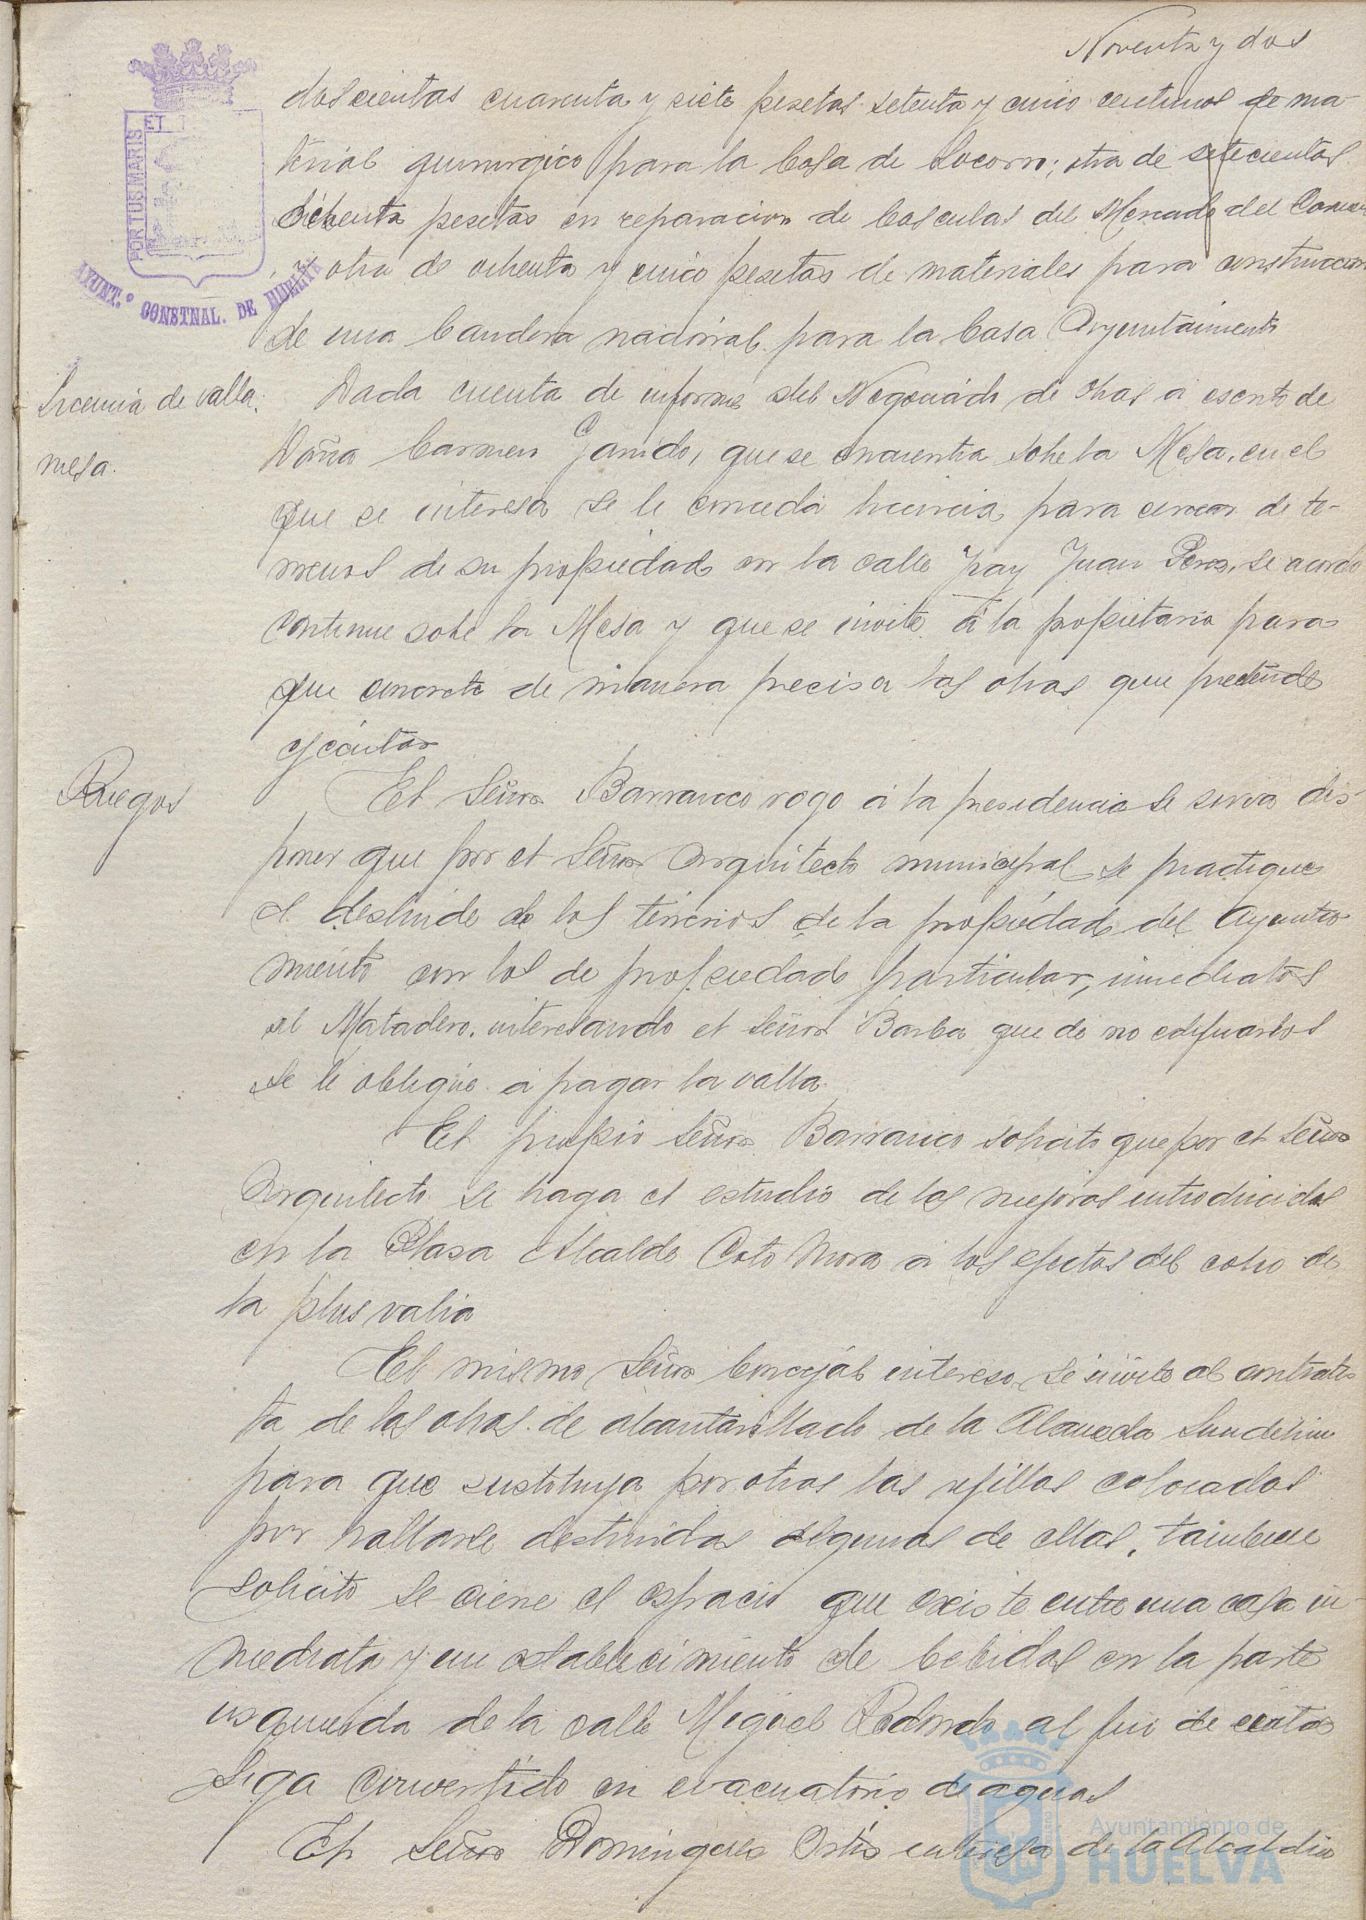 Noventa y dos
PORTUS MARIS
ET
AYUNT.º CONSTNAL. DE HUELVA
doscientas cuarenta y siete pesetas setenta y cinco centimos de ma-
terial quirurgico para la Casa de Socorro; otra de setecientas
ochenta pesetas en reparacion de basculas del Mercado del Carmen
y otra de ochenta y cinco pesetas de materiales para construccion
de una bandera nacional para la Casa Ayuntamiento
Licencia de valla.
mesa.
Dada cuenta de informe del Negociado de Obras a escrito de
Doña Carmen Garrido, que se encuentra sobre la Mesa, en el
que se interesa se le conceda licencia para cercar de te-
rrenos de su propiedad en la calle Fray Juan Perez, se acordo
continue sobre la Mesa y que se invite a la propietaria para
que concrete de manera precisa las obras que pretende
ejecutar
Ruegos
El Señor Barranco rogo a la presidencia se sirva dis-
poner que por el Señor Arquitecto municipal se practique
el deslinde de los terrenos de la propiedad del Ayunta
miento con los de propiedad particular, inmediatos
al Matadero, interesando el Señor Barba que de no edificarlos
se le obligue a pagar la valla
El propio Señor Barranco solicito que por el Señor
Arquitecto se haga el estudio de las mejoras introducidas
en la Plasa Alcalde Coto Mora a los efectos del cobro de
la plus valia
El mismo Señor Concejal intereso se invite al contratis
ta de las obras de alcantarillado de la Alameda Sundehin
para que sustituya por otras las rejillas colocadas
por hallarse destruidas algunas de ellas, tambien
solicito se cierre el espacio que existe entre una casa in-
mediata y un establecimiento de bebidas en la parte
izquierda de la calle Miguel Redondo al fin de evitar
siga convertido en evacuatorio de aguas
El Señor Dominguez Ortiz interesa de la Alcaldia
Ayuntamiento de
HUELVA